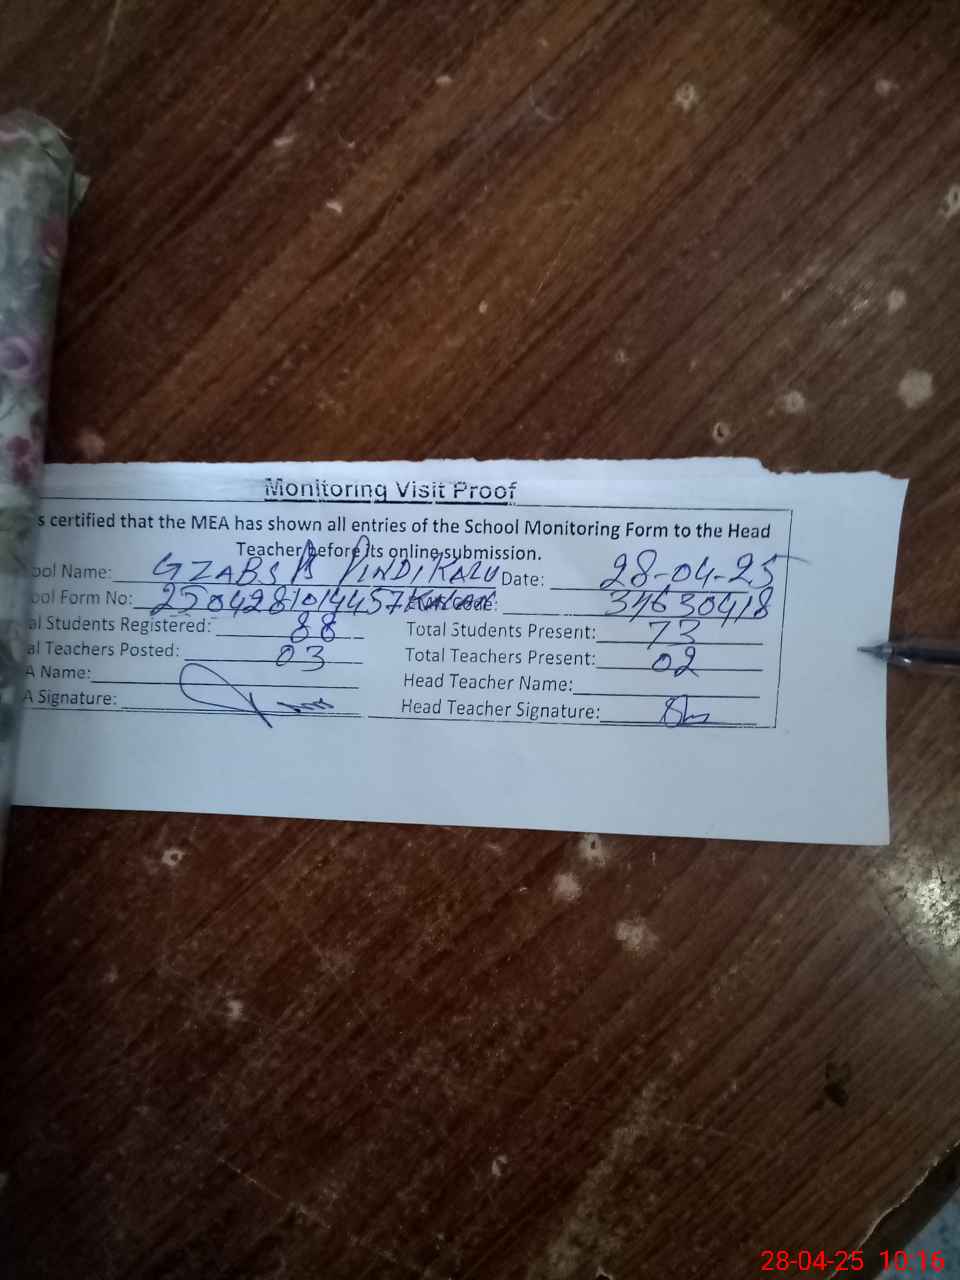 Monitoring Visit Proof
s certified that the MEA has shown all entries of the School Monitoring Form to the Head
Teacher before its online submission.
ool Name: GZABS PINDI KALU Date: 28-04-25
ool Form No: 2504281014457 Code: 34630418
al Students Registered: 88 Total Students Present: 73
al Teachers Posted: 03 Total Teachers Present: 02
A Name: Head Teacher Name:
A Signature: Head Teacher Signature:
28-04-25 10:16